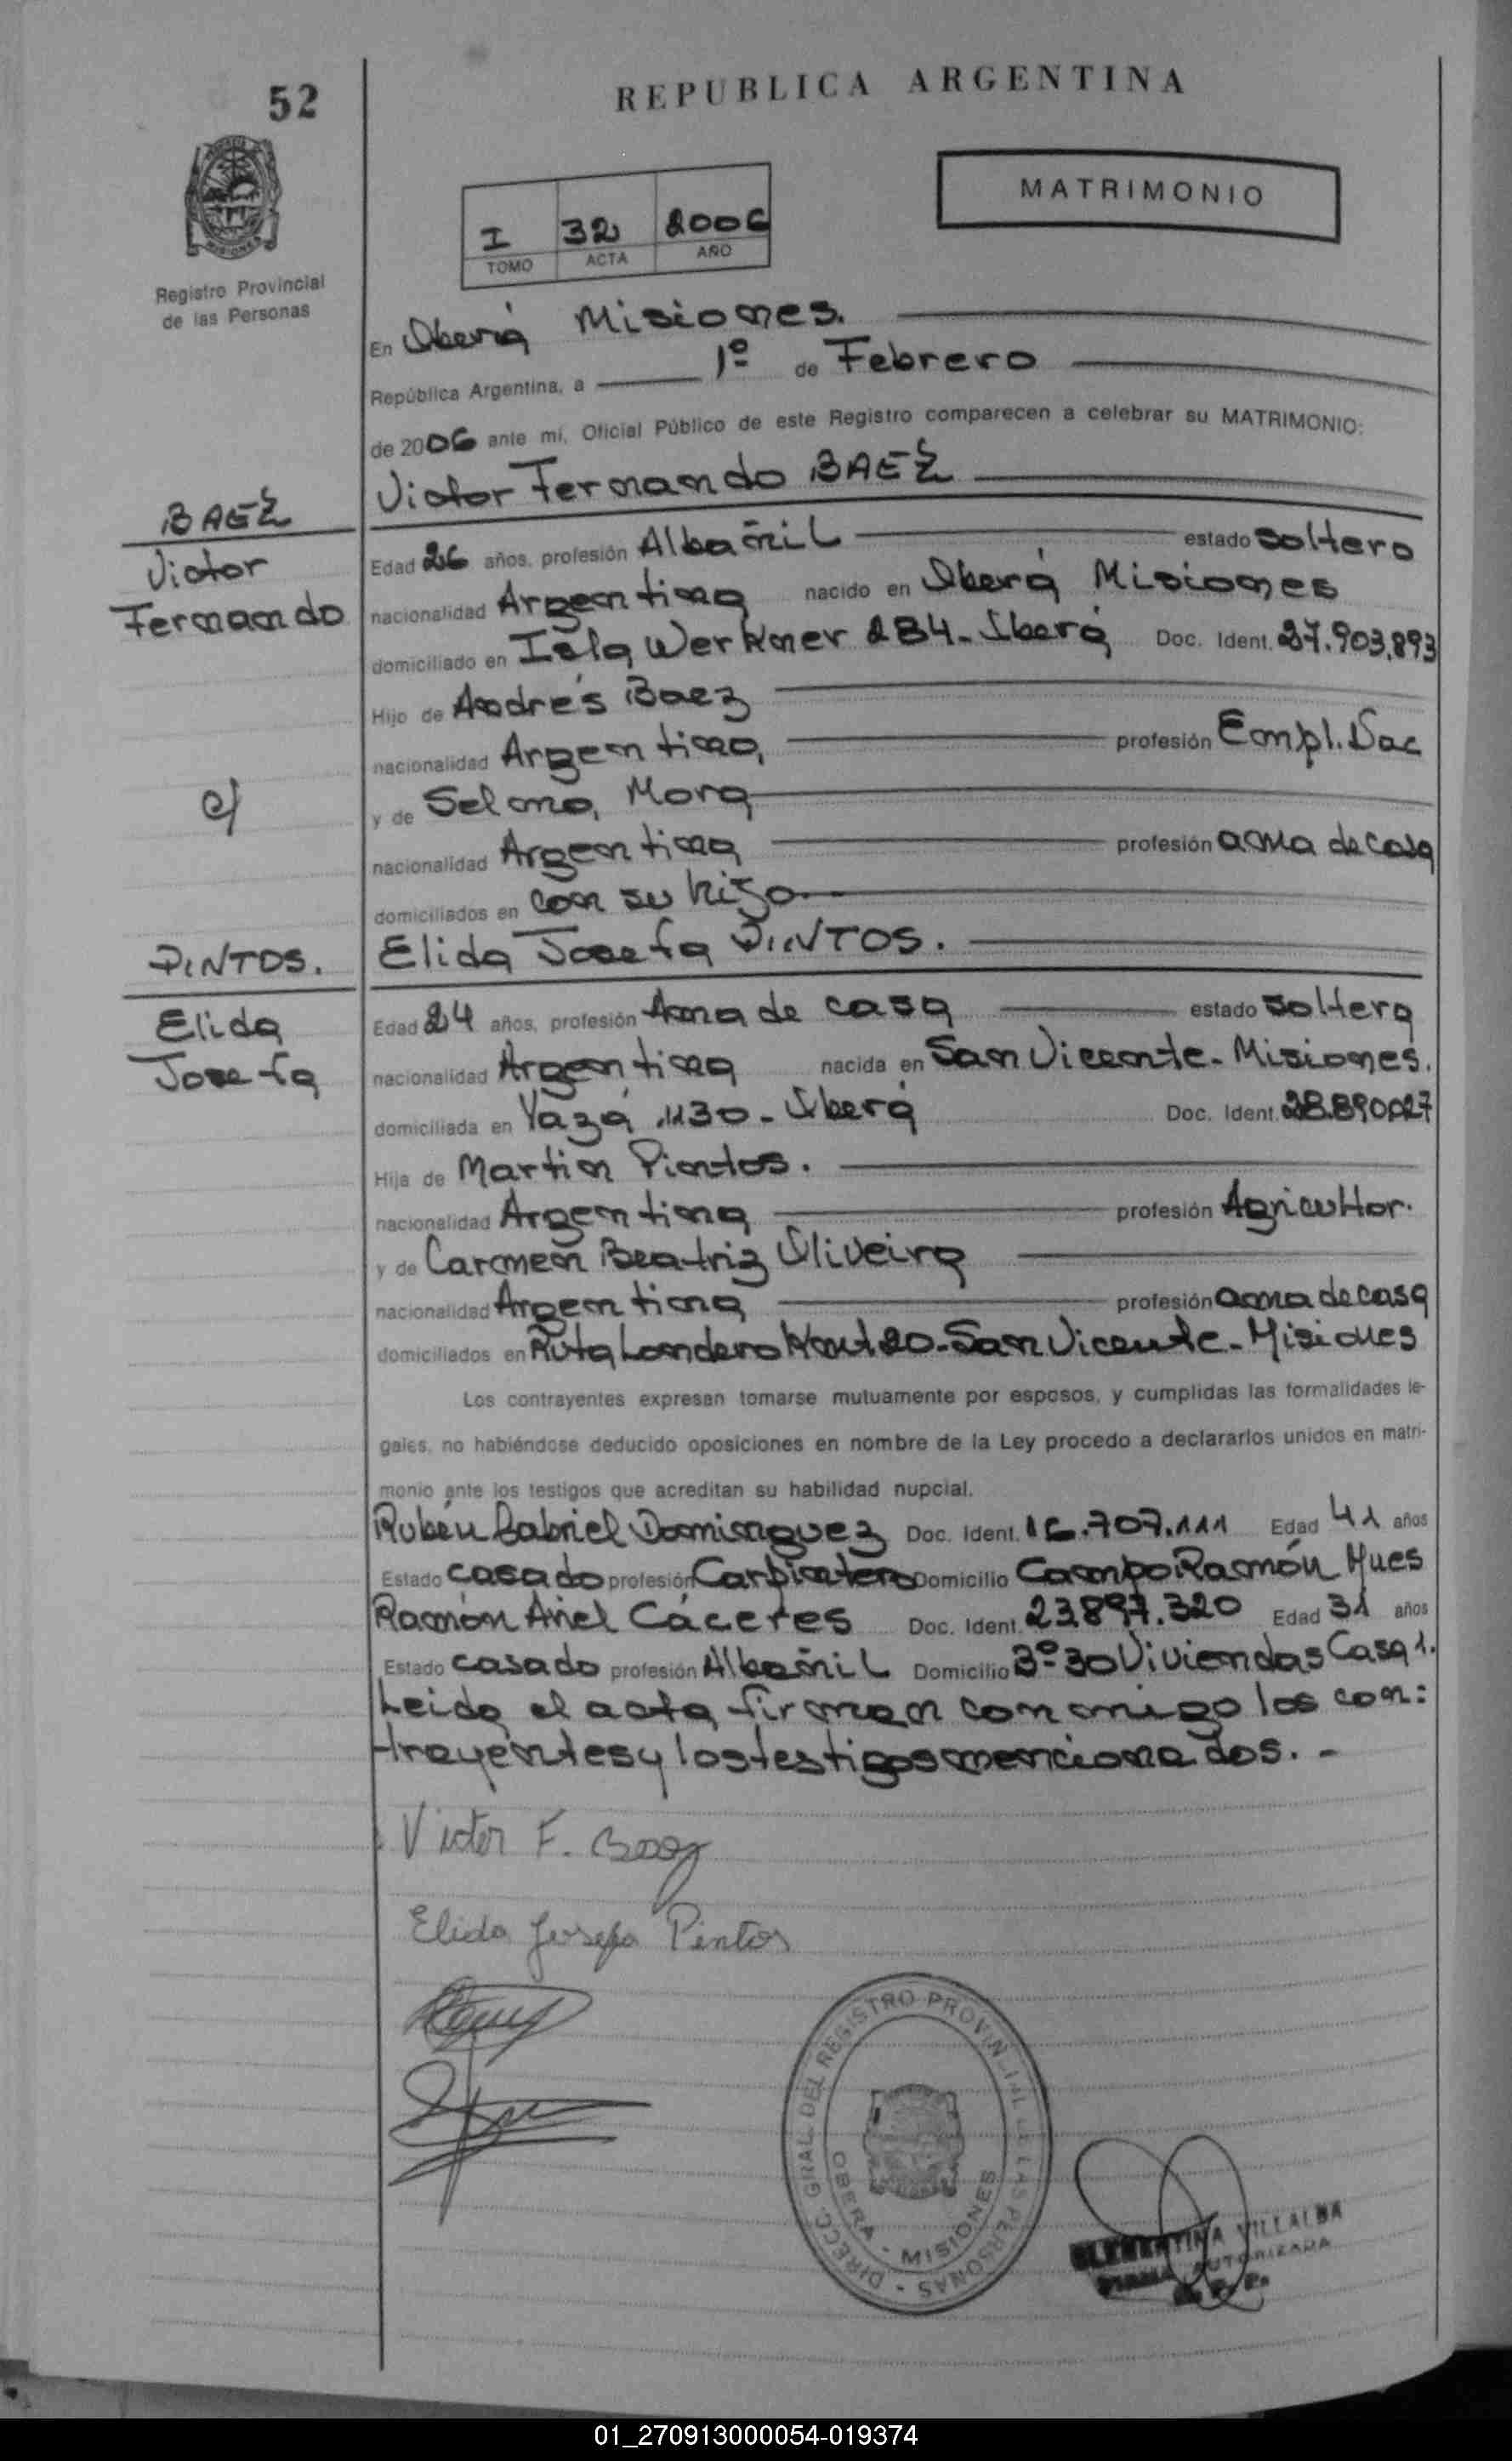 52
REPUBLICA ARGENTINA
MATRIMONIO
I 32 2006
TOMO ACTA AÑO
Registro Provincial
de las Personas
En Oberá Misiones.
República Argentina, a 1º de Febrero
de 2006 ante mí, Oficial Público de este Registro comparecen a celebrar su MATRIMONIO:
Victor Fernando BAEZ
BAEZ
Victor
Fernando
Edad 26 años, profesión Albañil estado soltero
nacionalidad Argentina nacido en Oberá Misiones
domiciliado en Isla Werkner 284 - Oberá Doc. Ident. 27.903.893
Hijo de Andrés Baez
nacionalidad Argentino, profesión Empl.
c/
y de Mora
nacionalidad Argentina profesión ama de casa
domiciliados en con su hijo.
PINTOS.
Elida
Josefa
Elida Josefa PINTOS.
Edad 24 años, profesión Ama de casa estado soltera
nacionalidad Argentina nacida en San Vicente - Misiones.
domiciliada en Yazá 1130 - Oberá Doc. Ident. 28.890.027
Hija de Martin Pintos.
nacionalidad Argentina profesión Agricultor.
y de Carmen Beatriz Oliveira
nacionalidad Argentina profesión ama de casa
domiciliados en Ruta Landero 20 - San Vicente - Misiones
Los contrayentes expresan tomarse mutuamente por esposos, y cumplidas las formalidades le-
gales, no habiéndose deducido oposiciones en nombre de la Ley procedo a declararlos unidos en matri-
monio ante los testigos que acreditan su habilidad nupcial.
Rubén Gabriel Dominguez Doc. Ident. 16.707.111 Edad 41 años
Estado casado profesión Carpintero Domicilio Campo Ramón Mnes
Ramón Ariel Cáceres Doc. Ident. 23.897.320 Edad 31 años
Estado casado profesión Albañil Domicilio 3º 30 Viviendas Casa 1.
Leida el acta firman conmigo los con:
trayentes y los testigos mencionados. -
Victor F. Baez
Elida Josefa Pintos
DIRECC. GRAL. DEL REGISTRO PROVINCIAL DE LAS PERSONAS -
OBERA - MISIONES
CLEMENTINA VILLALBA
FIRMA AUTORIZADA
R. P. P.
01_270913000054-019374